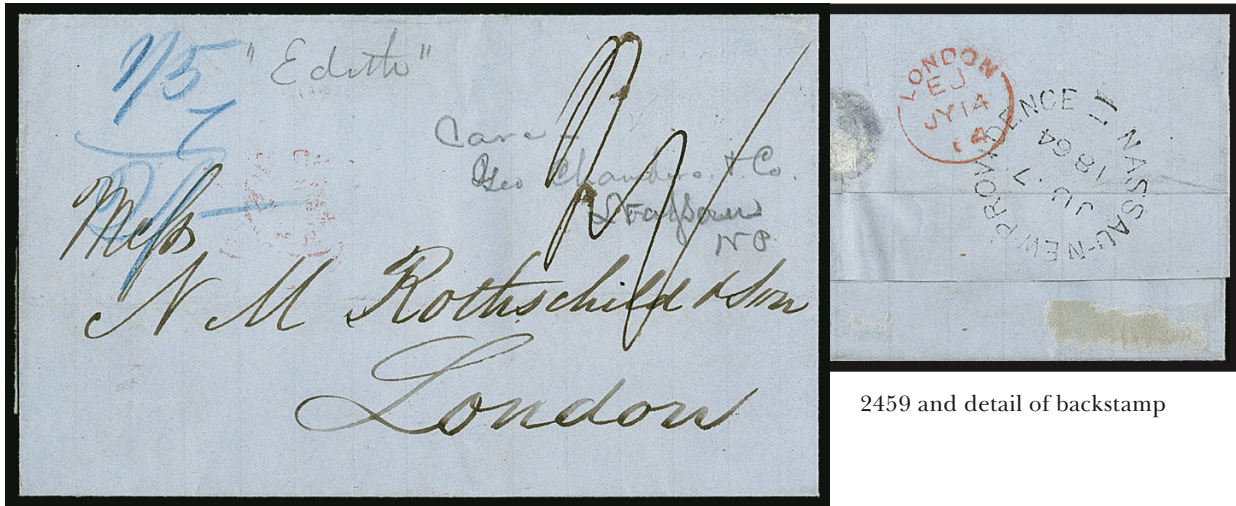 1/5
"Edith"
7
Care
Geo Chambers & Co.
Nassau
N.P.
Mess
N M Rothschild & Son
London
LONDON
EJ
JY 14
64
NASSAU-NEW PROVIDENCE
JU. 7
1864
2459 and detail of backstamp